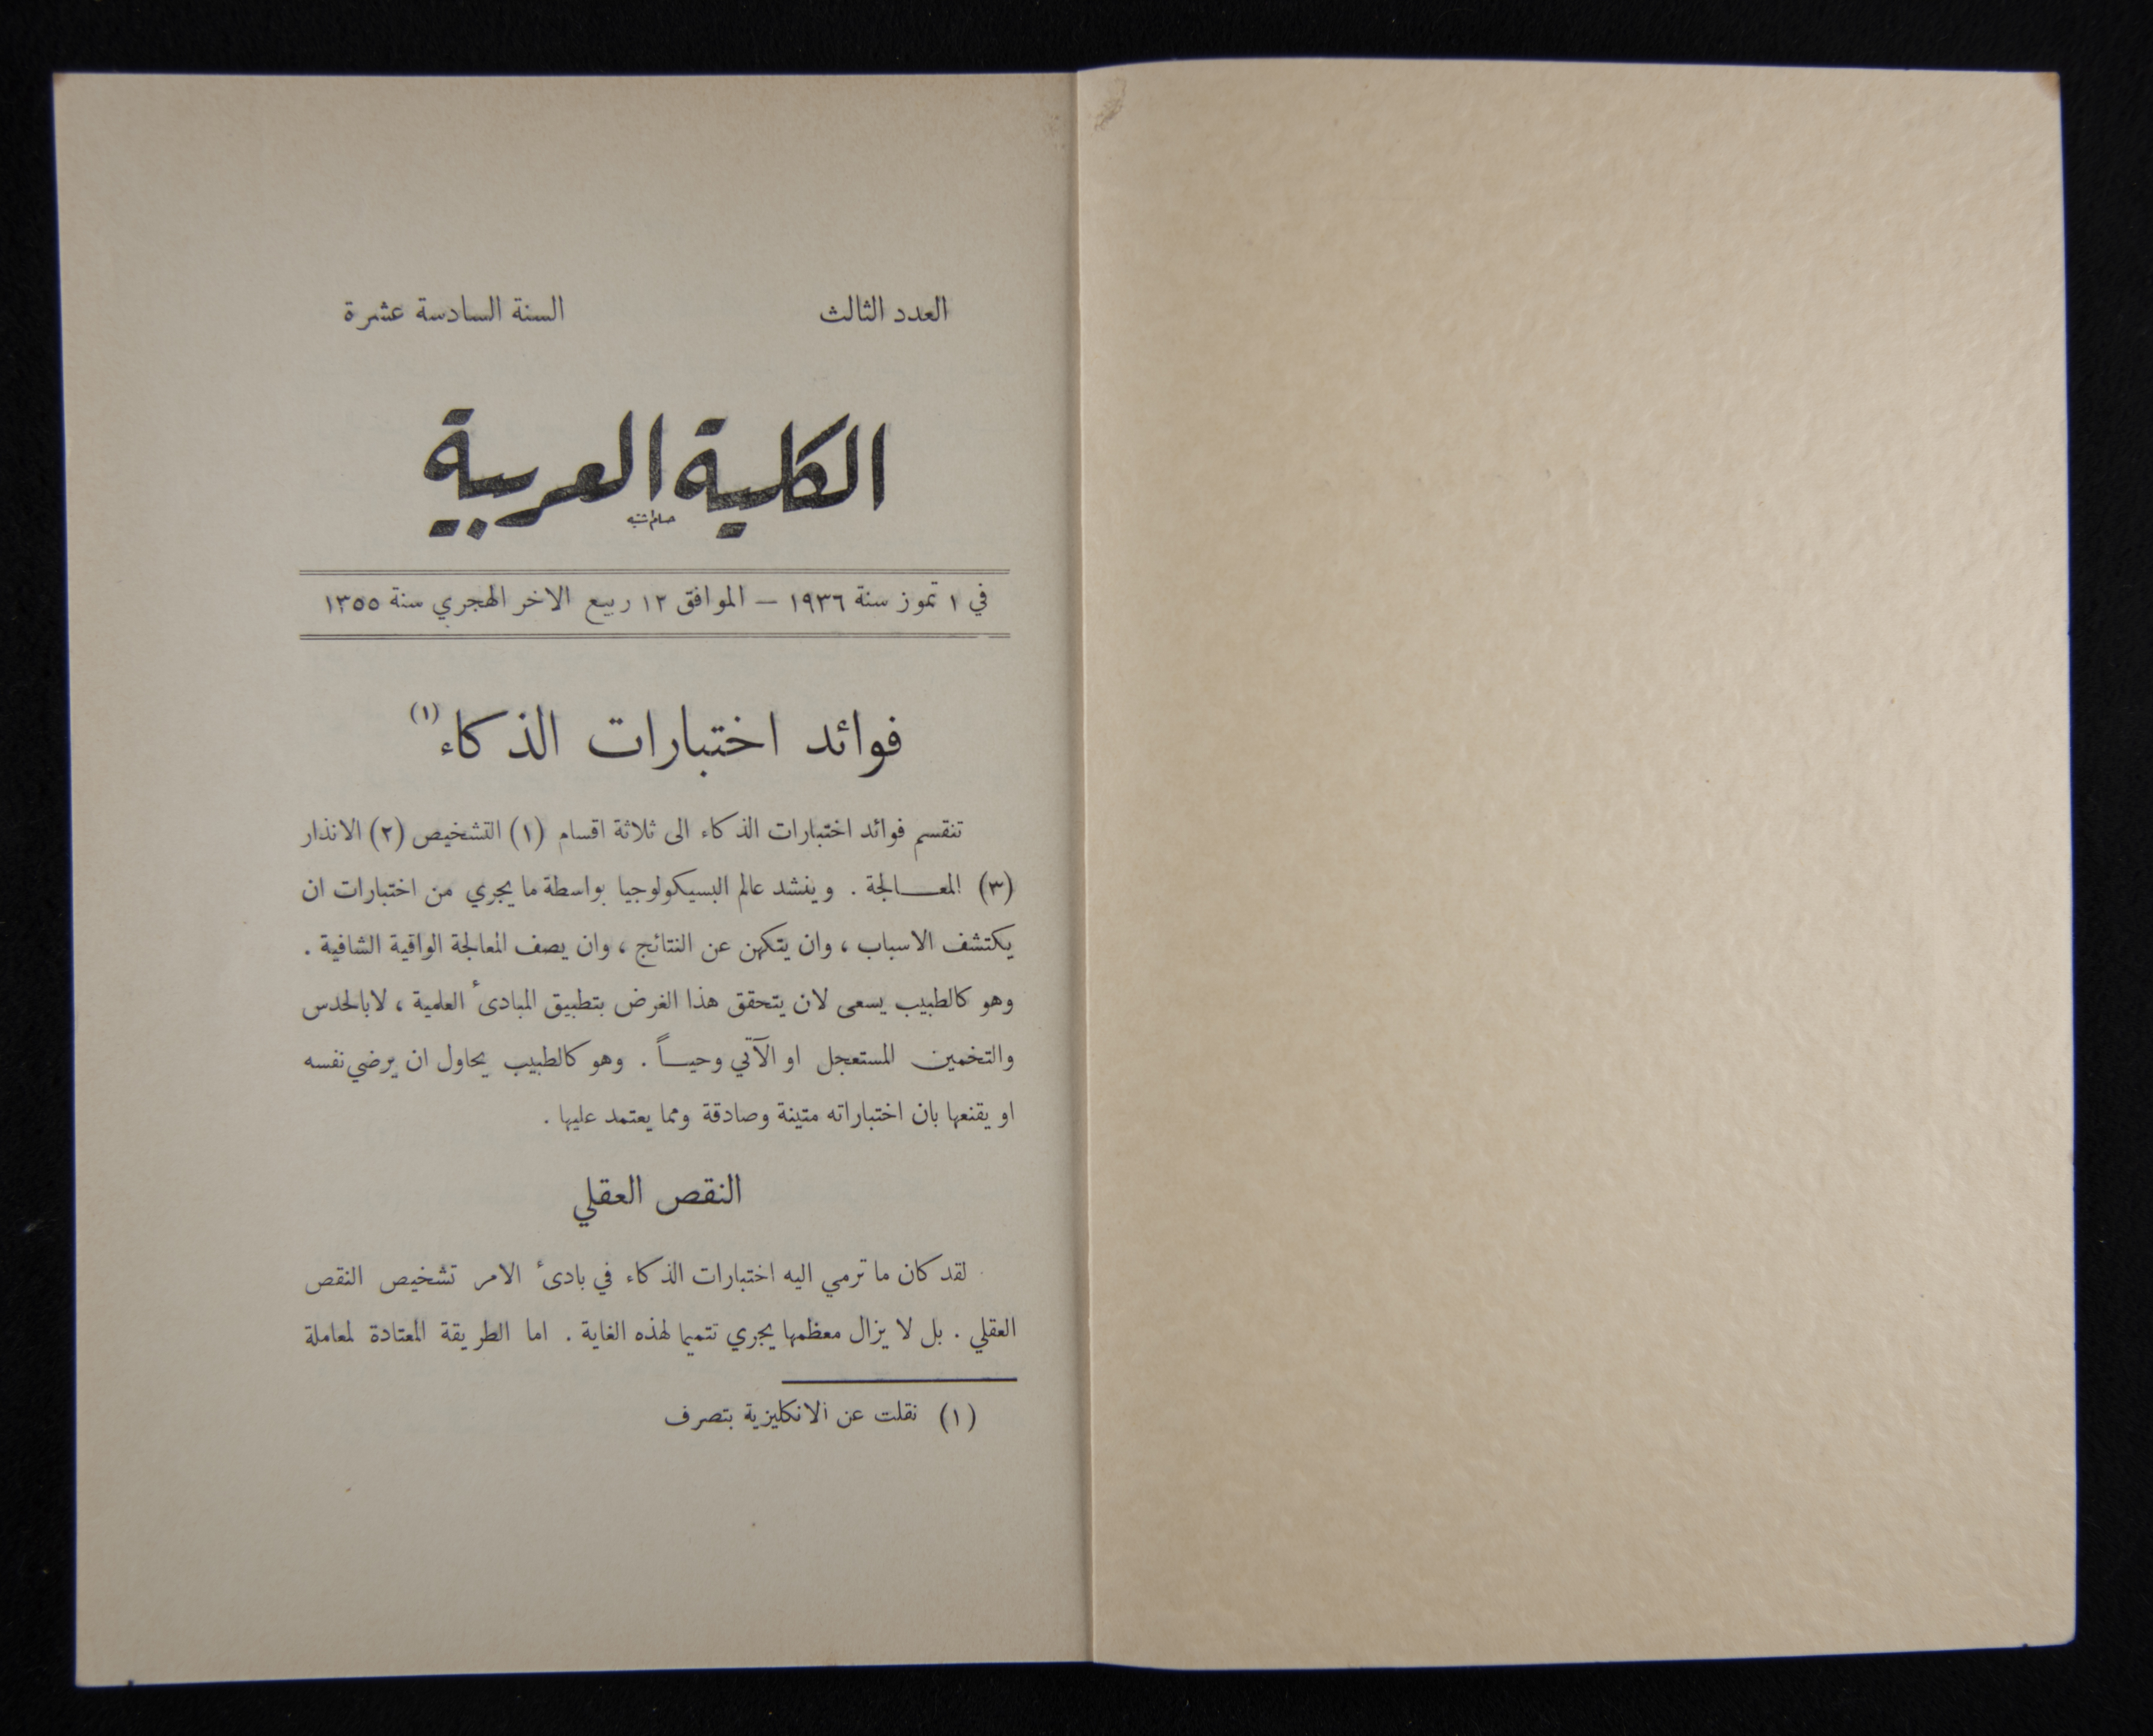 العدد الثالث
السنة السادسة عشرة
الكلية العربية
في ١ تموز سنة ١٩٣٦ — الموافق ١٢ ربيع الاخر الهجري سنة ١٣٥٥
فوائد اختبارات الذكاء (١)
تنقسم فوائد اختبارات الذكاء الى ثلاثة اقسام (١) التشخيص (٢) الانذار
(٣) المعـــالجة . وينشد عالم البسيكولوجيا بواسطة ما يجري من اختبارات ان
يكتشف الاسباب ، وان يتكهن عن النتائج ، وان يصف المعالجة الواقية الشافية .
وهو كالطبيب يسعى لان يتحقق هذا الغرض بتطبيق المبادىء العلمية ، لا بالحدس
والتخمين المستعجل او الآتي وحيـــاً . وهو كالطبيب يحاول ان يرضي نفسه
او يقنعها بان اختباراته متينة وصادقة ومما يعتمد عليها .
النقص العقلي
لقد كان ما ترمي اليه اختبارات الذكاء في بادىء الامر تشخيص النقص
العقلي . بل لا يزال معظمها يجري تتميما لهذه الغاية . اما الطريقة المعتادة لمعاملة
(١) نقلت عن الانكليزية بتصرف